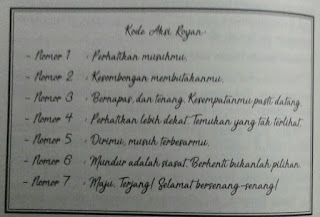 Kode Aksi Royan:
- Nomor 1 : Perhatikan musuhmu.
- Nomor 2 : Kesombongan membutakanmu.
- Nomor 3 : Bernapas, dan tenang. Kesempatanmu pasti datang.
- Nomor 4 : Perhatikan lebih dekat. Temukan yang tak terlihat.
- Nomor 5 : Dirimu, musuh terbesarmu.
- Nomor 6 : Mundur adalah siasat. Berhenti bukanlah pilihan.
- Nomor 7 : Maju, Terjang! Selamat bersenang-senang!